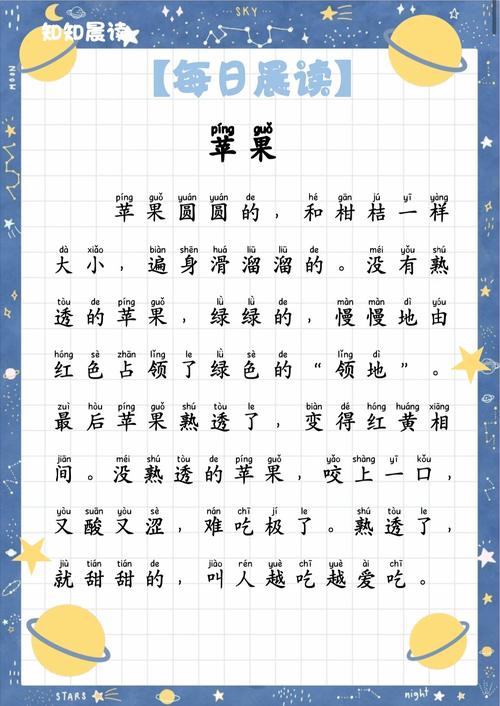 SKY
知知晨读
MOON
【每日晨读】
píng guǒ
苹果
píng guǒ yuán yuán de hé gān jú yī yàng
苹果圆圆的，和柑桔一样
dà xiǎo biàn shēn huá liū liū de méi yǒu shú
大小，遍身滑溜溜的。没有熟
tòu de píng guǒ lǜ lǜ de màn màn dì yóu
透的苹果，绿绿的，慢慢地由
hóng sè zhān lǐng le lǜ sè de lǐng dì
红色占领了绿色的“领地”。
zuì hòu píng guǒ shú tòu le biàn de hóng huáng xiāng
最后苹果熟透了，变得红黄相
jiān méi shú tòu de píng guǒ yǎo shàng yī kǒu
间。没熟透的苹果，咬上一口，
yòu suān yòu sè nán chī jí le shú tòu le
又酸又涩，难吃极了。熟透了，
jiù tián tián de jiào rén yuè chī yuè ài chī
就甜甜的，叫人越吃越爱吃。
STARS
night